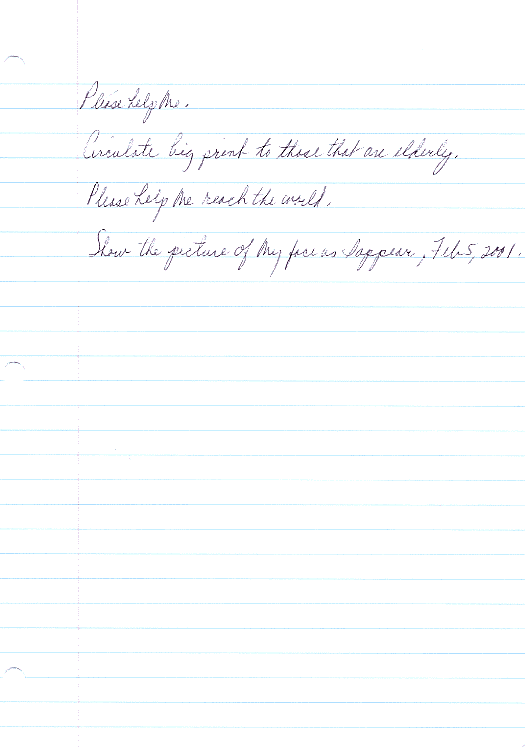 Please help Me.
Circulate big print to those that are elderly.
Please help Me reach the world.
Show the picture of My face as I appear, Feb. 5, 2001.